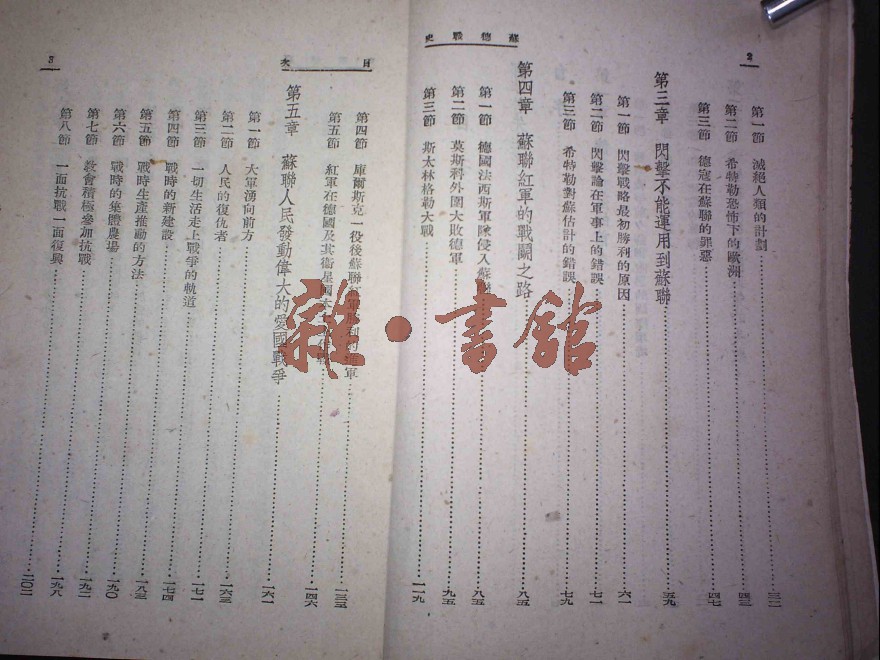 2
蘇德戰史
第一節 滅絕人類的計劃 三二
第二節 希特勒恐怖下的歐洲 四三
第三節 德寇在蘇聯的罪惡 四七
第三章 閃擊不能運用到蘇聯 五九
第一節 閃擊戰略最初勝利的原因 六一
第二節 閃擊論在軍事上的錯誤 七一
第三節 希特勒對蘇估計的錯誤 七九
第四章 蘇聯紅軍的戰鬭之路 八五
第一節 德國法西斯軍隊侵入蘇 八五
第二節 莫斯科外圍大敗德軍 九五
第三節 斯太林格勒大戰 一一九
目次
3
第四節 庫爾斯克一役後蘇聯 軍
第五節 紅軍在德國及其衛星國 一四六
第五章 蘇聯人民發動偉大的愛國戰爭 一六一
第一節 大軍湧向前方 一六一
第二節 人民的復仇者 一六三
第三節 一切生活走上戰爭的軌道 一七一
第四節 戰時的新建設 一七四
第五節 戰時生產推動的方法 一八三
第六節 戰時的集體農場 一九〇
第七節 教會積極參加抗戰 一九二
第八節 一面抗戰一面復興 二〇二
雜·書館